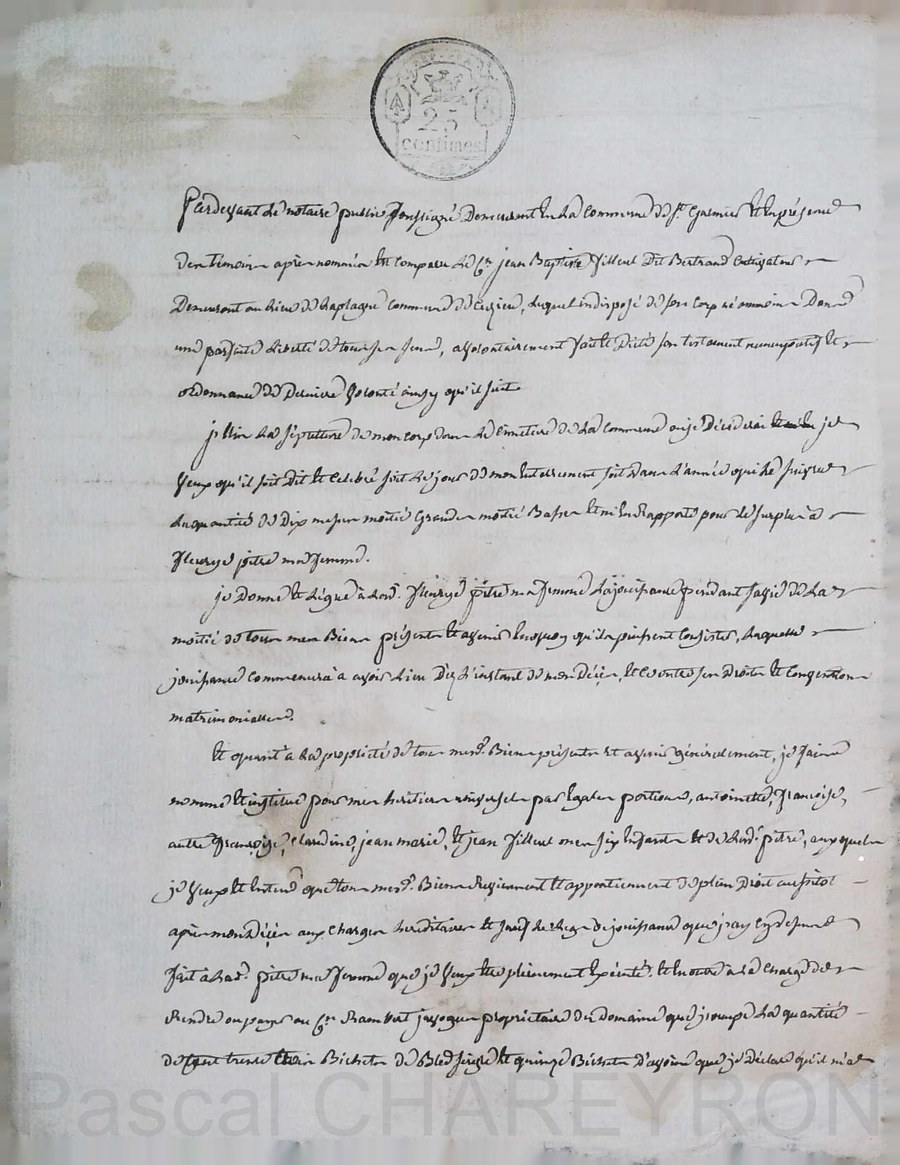 REP. FRA
25
centimes
Pardevant le notaire public soussigné demeurant en la commune de St. Galmier et en présence
des témoins après nommés est comparu le Cn. jean Baptiste Villeut dit Bertrand cultivateur
demeurant au lieu de laplagne commune de Cuzieu, lequel indisposé de son corps néanmoins dans
une parfaite liberté de tous ses sens, a volontairement fait et dicté son testament nuncupatif et
ordonnance de derniere volonté ainsy qu'il suit
j'Elis la sépulture de mon corps dans le cimetiere de la commune ou je décéderai je
veux qu'il soit dit et celebré soit le jour de mon enterrement soit dans l'année qui le suivra
la quantité de dix messes moitié grandes moitié Basses et m'en rapporte pour le surplus à
fleurye pitre ma femme.
je donne et légue à lad. fleurye pitre ma femme la jouissance pendant sa vie de la
moitié de tous mes Biens présents et avenir en quoy qu'ils puissent consister, laquelle
jouissance commencera a avoir lieu dez l'instant de mon décès, et ce outre ses droits et conventions
matrimoniales.
Et quant à la propriété de tous mesd. Biens présents et avenir généralement, je fais
nomme et institue pour mes heritiers universels par Egales portions, antoinette, françoise,
autre françoise, claudine, jean marie, et jean Villeut mes six enfants et de lad. pitre, auxquels
je veux et entend que tous mesd. Biens reviennent et appartiennent de plein droit aussitot
après mon décès aux charges hereditaires et sauf le legs de jouissance que j'ay cy dessus
fait à lad. pitre ma femme que je veux etre pleinement exécuté. et en outre à la charge de
rendre ou payer au Cn. Rambert propriétaire du domaine que j'occupe la quantité
de cent trente trois Bichets de Bled seigle et quinze Bichets d'avoine que je déclare qu'il m'a
Pascal CHAREYRON